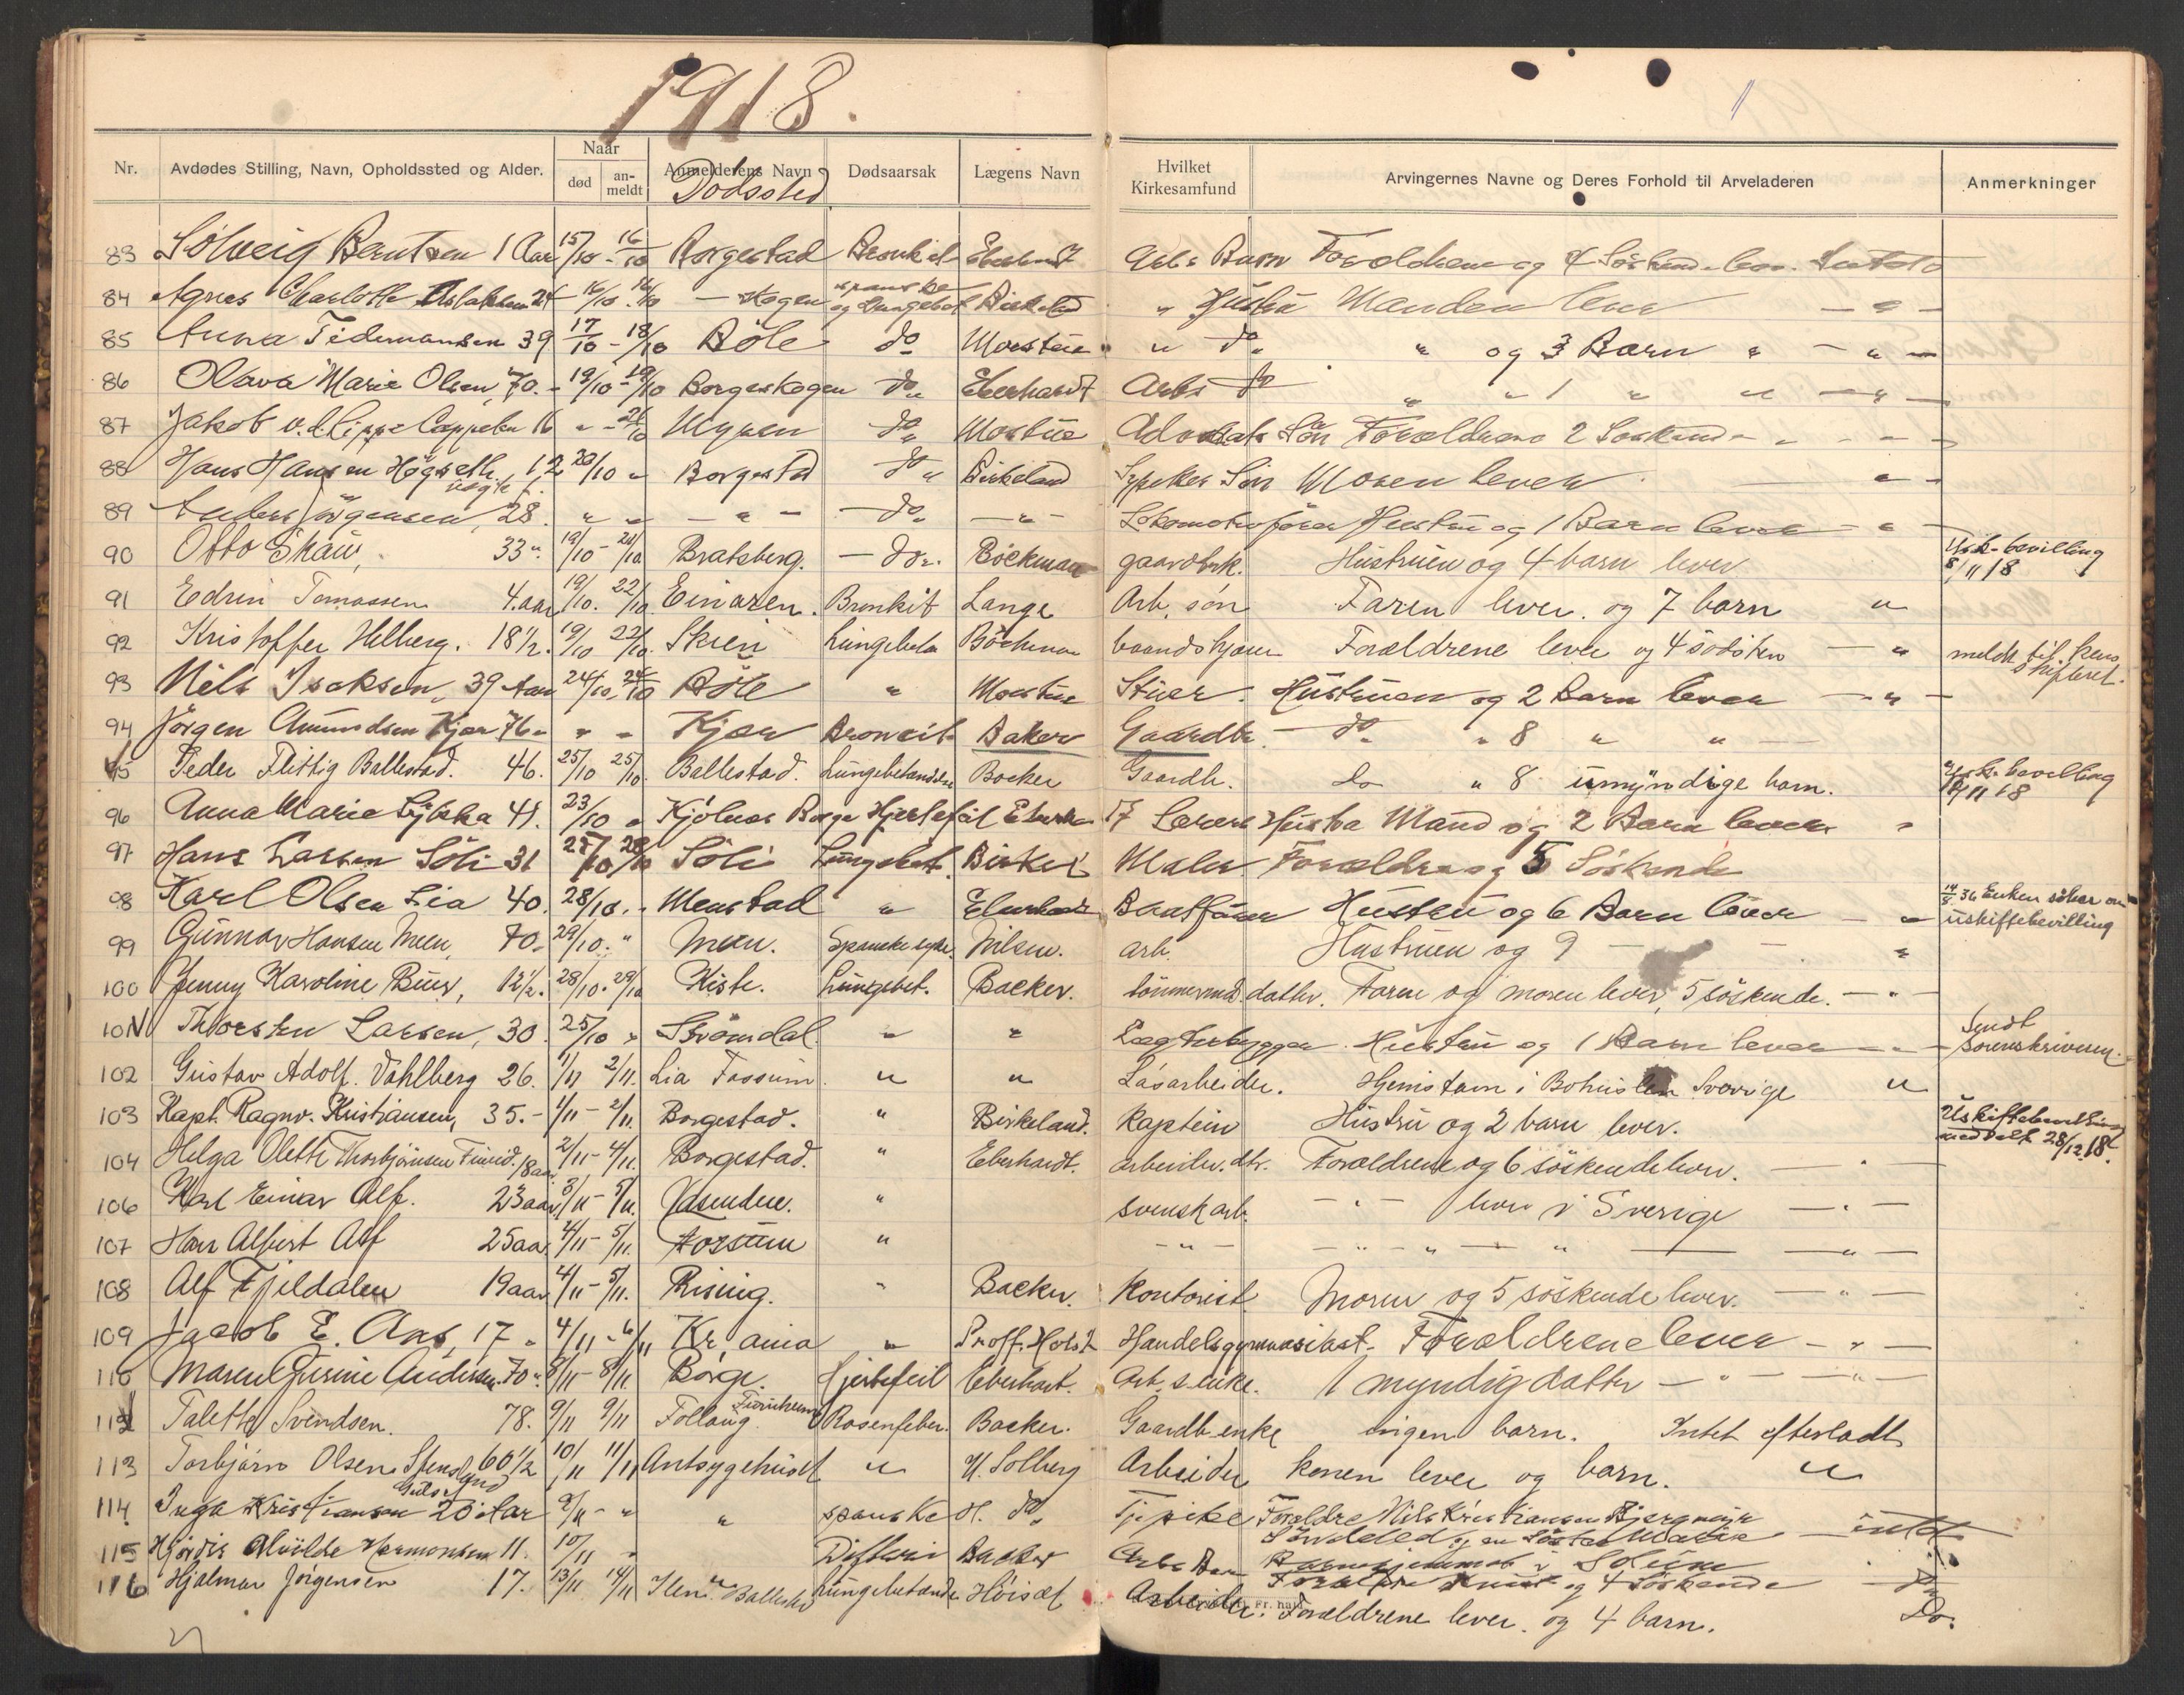 1918.
Nr. Avdødes Stilling, Navn, Opholdssted og Alder. Naar død an-meldt Anmelderens Navn Dødsaarsak Lægens Navn Hvilket Kirkesamfund Arvingernes Navne og Deres Forhold til Arveladeren Anmerkninger
Dødssted
83 Solveig Berntsen 1 Aar 15/10 - 16/10 Borgestad Bronkit Eberhardt Arbs Barn Forældrene og 4 Söskende lever
84 Agnes Charlotte 24 - 16/10 16/10 - Skogen spanske og Lungebet Birkeland " Hustru Manden lever - " -
85 Anna Tidemansen 39 17/10 - 18/10 Böle do Moestue " do " og 3 Barn " - " -
86 Olava Marie Olsen, 70. - 19/10 - 19/10 Borgeskogen do Eberhardt Arbs do " " 1 " " - " -
87 Jakob v. d. Lippe Cappelen 16 " - 21/10 Myren do Moestue Advokats Sön Forældrene 2 Söskende - " - " -
88 Hans Hansen Högseth, 12 20/10 " Borgestad do " Birkeland Sön Moren lever " -
89 Anders Jörgensen, 28. " " - " - - do - " - Lokomotivförer Hustru og 1 Barn lever - " -
90 Otto Skau, 33 " 19/10 - 21/10 Bratsberg. - do ". Böckman gaardbrk. Hustruen og 4 barn lever Usk. bevilling 8/11 18
91 Edvin Tomassen 4. aar 19/10. 22/10. Einaren. Bronkit Lange Arb. søn Faren lever. og 7 barn "
92 Kristoffer Helberg. 18 1/2. 19/10 22/10. Skien Lungebet Böckman Forældrene lever og 4 södsken - " meldt til Skifteret.
93 Nils Isaksen, 39 Aar 24/10, 24/10 Böle " Moestue Stuer. Hustruen og 2 Barn lever - " -
94 Jörgen Amundsen Kjær 76 " " " Kjær Broncit Baker Gaardbr. - do " 8 " " -
95 Peder Flittig Ballestad. 46. 25/10 25/10. Ballestad. Lungebetændelse Backer Gaardb. do " 8 umyndige barn. Usk. bevilling 18/11 18
96 Anna Marie 41. 23/10 " Kjölnes Borge Hjertefeil Lærers Hustru Mand og 2 Barn lever "
97 Hans Larsen Söli 31 27/10 28/10 Söli Lungebet. Maler Forældre og 5 Söskende
98 Karl Olsen Lia 40. 28/10. " Menstad " Eberhardt Baatförer Hustru og 6 Barn lever - " 14/5 36 Enken söker om uskiftebevilling
99 Gunnar Hansen Meen, 70. 29/10. " Meen. Spanske syke. Nilsen. arb. Hustruen og 9 - - "
100 Jenny Karoline Buer, 12 1/2. 28/10. 29/10 Kiste. Lungebet. Backer. tömmerm. datter. Faren og moren lever, 5 söskende. - " -
101 Thorsten Larsen, 30 25/10 " Strömdal. " " Lægterbygger. Hustru og 1 Barn lever - " - Sendt Sorenskriveren.
102 Gustav Adolf. Vahlberg 26. 1/11 2/11. Lia Fossum. " " Lösarbeider. Hjemstavn i Bohuslen Sverige "
103 Kapt. Ragnv. Kristiansen, 35. - 1/11 - 2/11. Borgestad. " Birkeland. Kaptein Hustru og 2 barn lever. Uskiftebevilling meddelt 28/12 18.
104 Helga Olette Thorbjörnsen 18 aar. 2/11 - 4/11. Borgestad. " Eberhardt. arbeider. dtr. Forældrene og 6 söskende lever. - " -
106 Karl Einar Alf. 23 aar 3/11 - 5/11. Vasenden. " svensk arb. - " - lever i Sverige - " -
107 Hans Albert Alf 25 aar. 4/11 - 5/11. Fossum " - " - - " - " - " - - " -
108 Alf Fjeldalen 19 aar 4/11 - 5/11. Rising. " Backer. Kontorist Moren og 5 söskende lever. - " -
109 Jacob E. Aas, 17 " 4/11 - 6/11 Kr.ania " Proff. Holst Handelsgymnasiast - Forældrene lever - " -
110 Maren Gurine Andersen. 70 " 8/11 - 8/11 Borge. Hjertefeil Eberhart. Arb. s. enke. 1 myndig datter - " - - " -
112 Talette Svendsen. 78. 9/11 9/11 Follaug Rosenfeber. Backer. Gaardb enke ingen barn. Intet efterladt
113 Torbjörn Olsen 60 1/2 10/11 11/11 Antsygehuset " H. Solberg Arbeider konen lever og barn. "
114 Inga Kristiansen 20 Aar 9/11 - " " spanske H. do Tj. pike Forældre Nils Kristiansen
og en Söster intet
115 Hjördis Alvilde Hermansen 11. 10/11 " Difteri Backer Arbs Barn Forældre og 4 Söskende do
116 Hjalmar Jörgensen 17. 13/11 14/11 Lungebetænde Höisæt Arbeider. Forældrene lever. og 4 barn. Do.